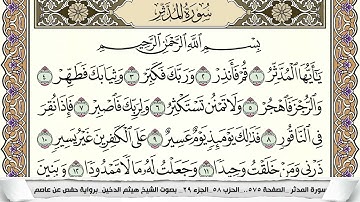 سورة المدثر
بسم الله الرحمن الرحيم
يَٰٓأَيُّهَا ٱلْمُدَّثِّرُ ١ قُمْ فَأَنذِرْ ٢ وَرَبَّكَ فَكَبِّرْ ٣ وَثِيَابَكَ فَطَهِّرْ ٤
وَٱلرُّجْزَ فَٱهْجُرْ ٥ وَلَا تَمْنُن تَسْتَكْثِرُ ٦ وَلِرَبِّكَ فَٱصْبِرْ ٧ فَإِذَا نُقِرَ
فِى ٱلنَّاقُورِ ٨ فَذَٰلِكَ يَوْمَئِذٍ يَوْمٌ عَسِيرٌ ٩ عَلَى ٱلْكَٰفِرِينَ غَيْرُ يَسِيرٍ ١٠
ذَرْنِى وَمَنْ خَلَقْتُ وَحِيدًا ١١ وَجَعَلْتُ لَهُۥ مَالًا مَّمْدُودًا ١٢ وَبَنِينَ
سورة المدثر .. الصفحة ٥٧٥ .. الحزب ٥٨ .. الجزء ٢٩ .. بصوت الشيخ هيثم الدخين برواية حفص عن عاصم